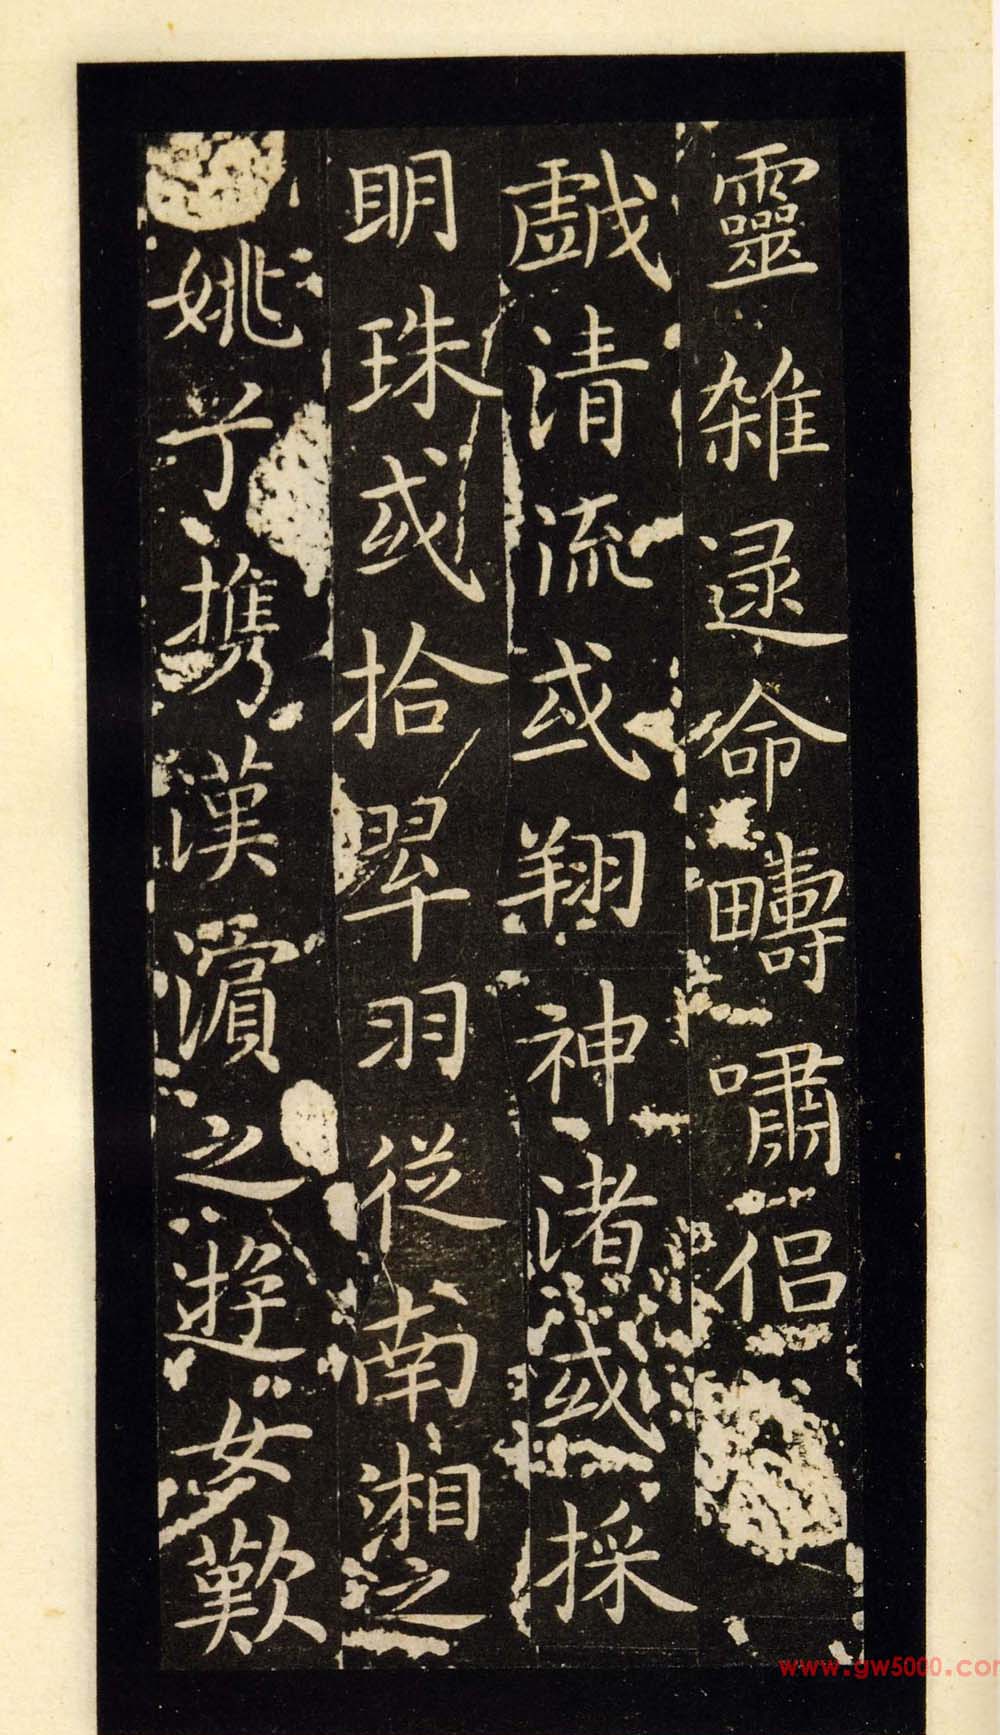 靈雜遝命疇嘯侶
戲清流或翔神渚或採
明珠或拾翠羽從南湘之
姚兮携漢濱之遊女歎
www.gw5000.com